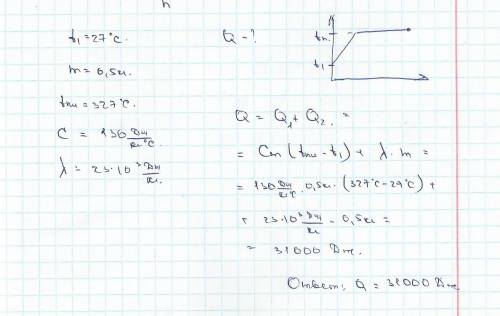 t₁ = 27°C.
m = 0,5кг.
tпл = 327°C.
C = 130 Дж/кг°C.
λ = 25·10³ Дж/кг.
Q - ?
tпл
t₁
Q = Q₁ + Q₂ =
= Cm (tпл - t₁) + λ · m =
= 130 Дж/кг°C · 0,5кг · (327°C - 27°C) +
+ 25·10³ Дж/кг · 0,5кг =
= 32000 Дж.
Ответ: Q = 32000 Дж